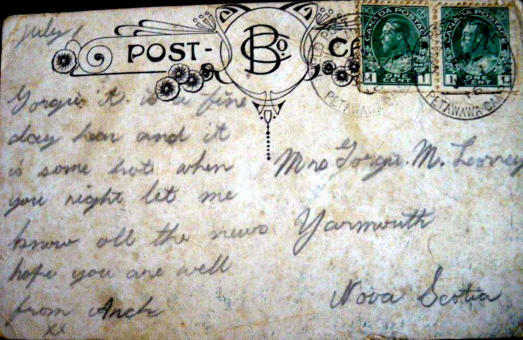 July
POST- CA
BCo
CANADA POSTAGE
1 ONE CENT 1
CANADA POSTAGE
1 ONE CENT 1
PETAWAWA CAMP
PETAWAWA CAMP
Gorgie it is a fine
day hear and it
is some hot when
you right let me
know all the news
hope you are well
from Arch
xx
Mrs Gorgie. M.
Yarmouth
Nova Scotia